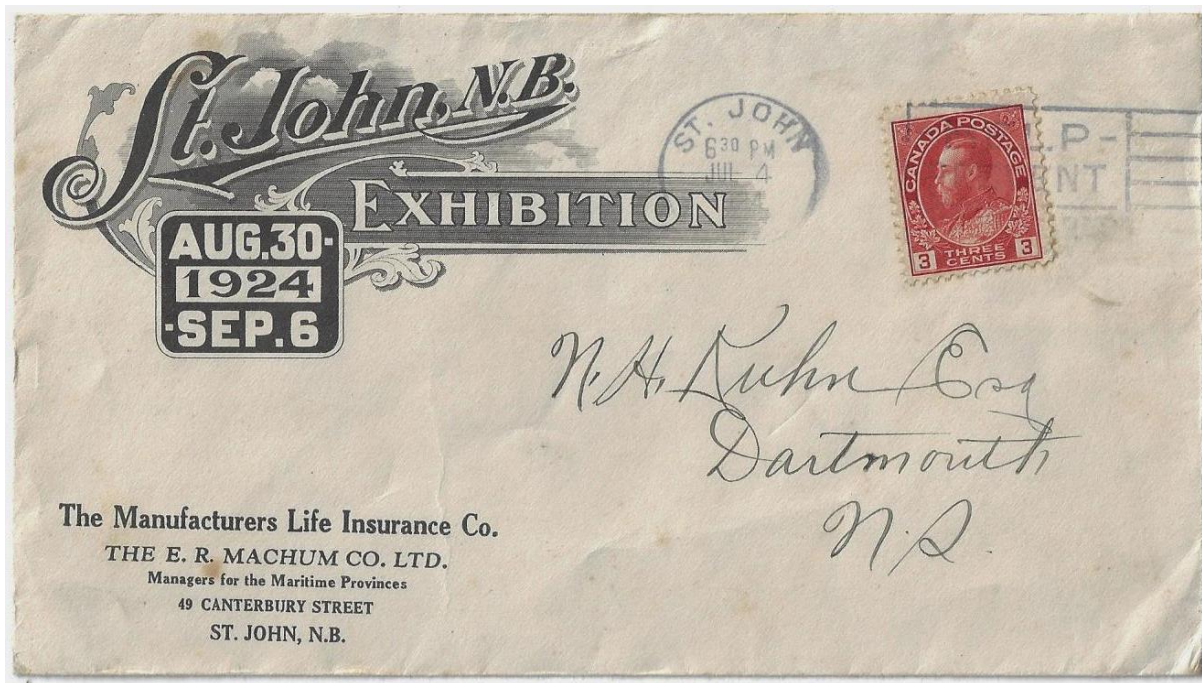 St. John, N.B.
EXHIBITION
AUG.30-
1924
-SEP.6
ST. JOHN
6 30 PM
JUL 4
CANADA POSTAGE
3 THREE CENTS 3
N. H. Kuhn Esq
Dartmouth
N.S.
The Manufacturers Life Insurance Co.
THE E. R. MACHUM CO. LTD.
Managers for the Maritime Provinces
49 CANTERBURY STREET
ST. JOHN, N.B.